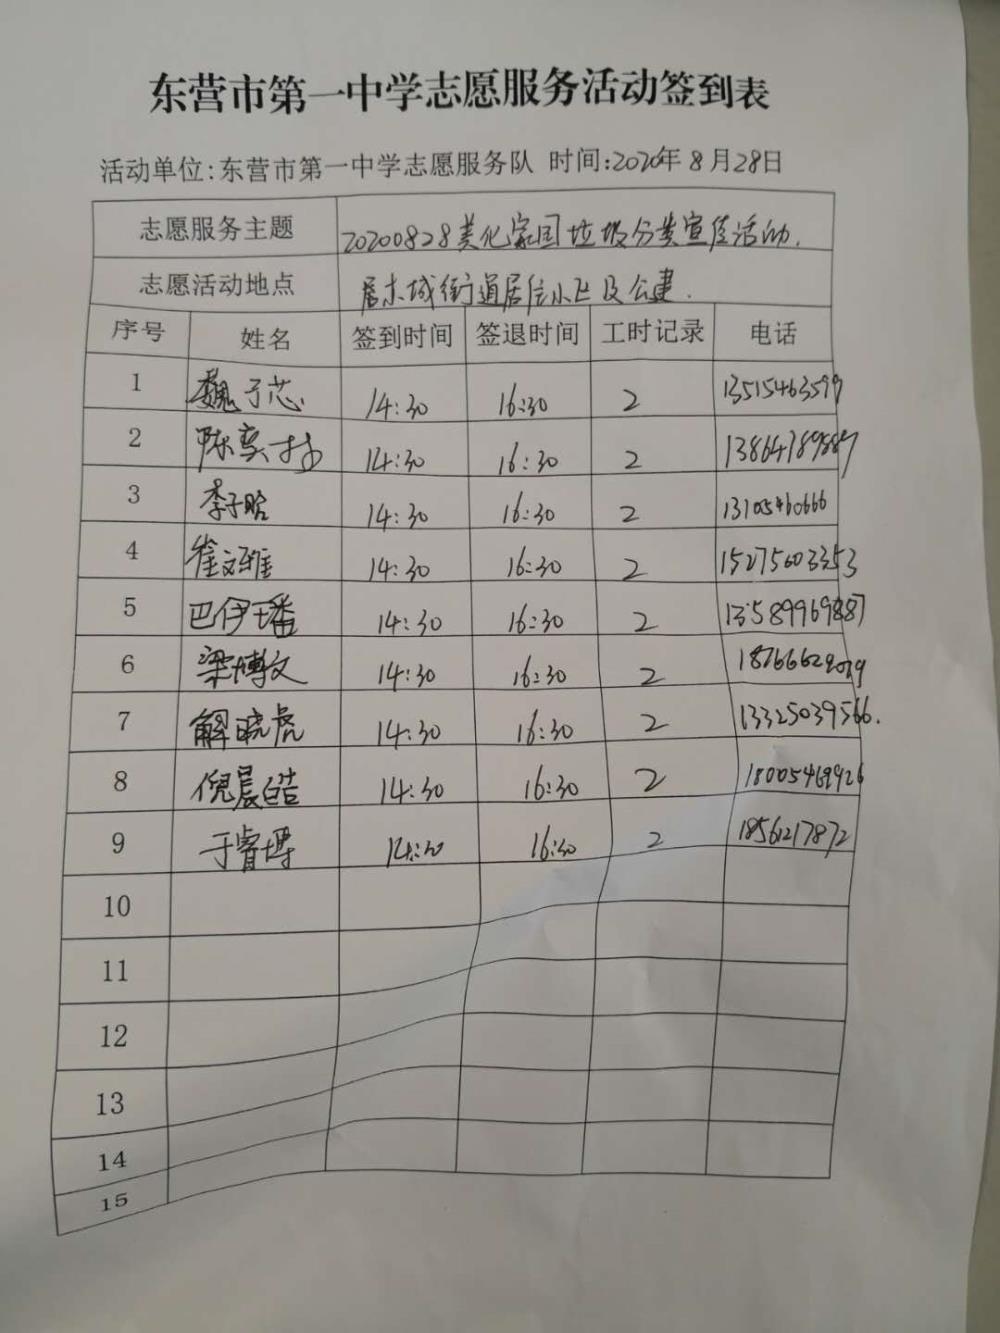 东营市第一中学志愿服务活动签到表
活动单位:东营市第一中学志愿服务队 时间:2020年8月28日
志愿服务主题 20200828美化家园垃圾分类宣传活动.
志愿活动地点 街道居住小区及公建.
序号 姓名 签到时间 签退时间 工时记录 电话
1 魏子芯 14:30 16:30 2 13515463599
2 陈奕 14:30 16:30 2
3 李子晗 14:30 16:30 2 13105460666
4 崔文雅 14:30 16:30 2 15275603353
5 巴伊璠 14:30 16:30 2 13589969887
6 梁博文 14:30 16:30 2
7 解晓虎 14:30 16:30 2 13325039566.
8 倪晨皓 14:30 16:30 2 18005469926
9 于睿博 14:30 16:30 2
10
11
12
13
14
15